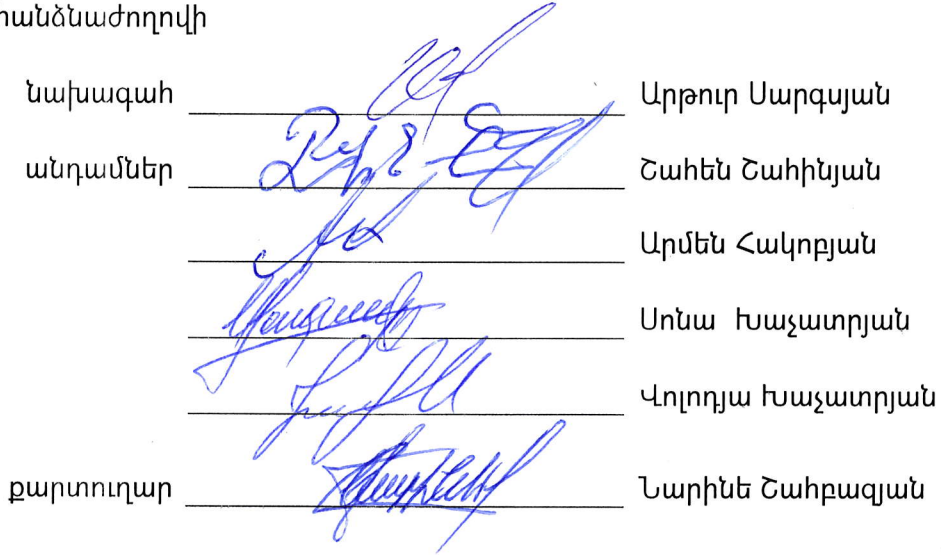 հանձնաժողովի
նախագահ Արթուր Սարգսյան
անդամներ Շահեն Շահինյան
Արմեն Հակոբյան
Սոնա Խաչատրյան
Վոլոդյա Խաչատրյան
քարտուղար Նարինե Շահբազյան